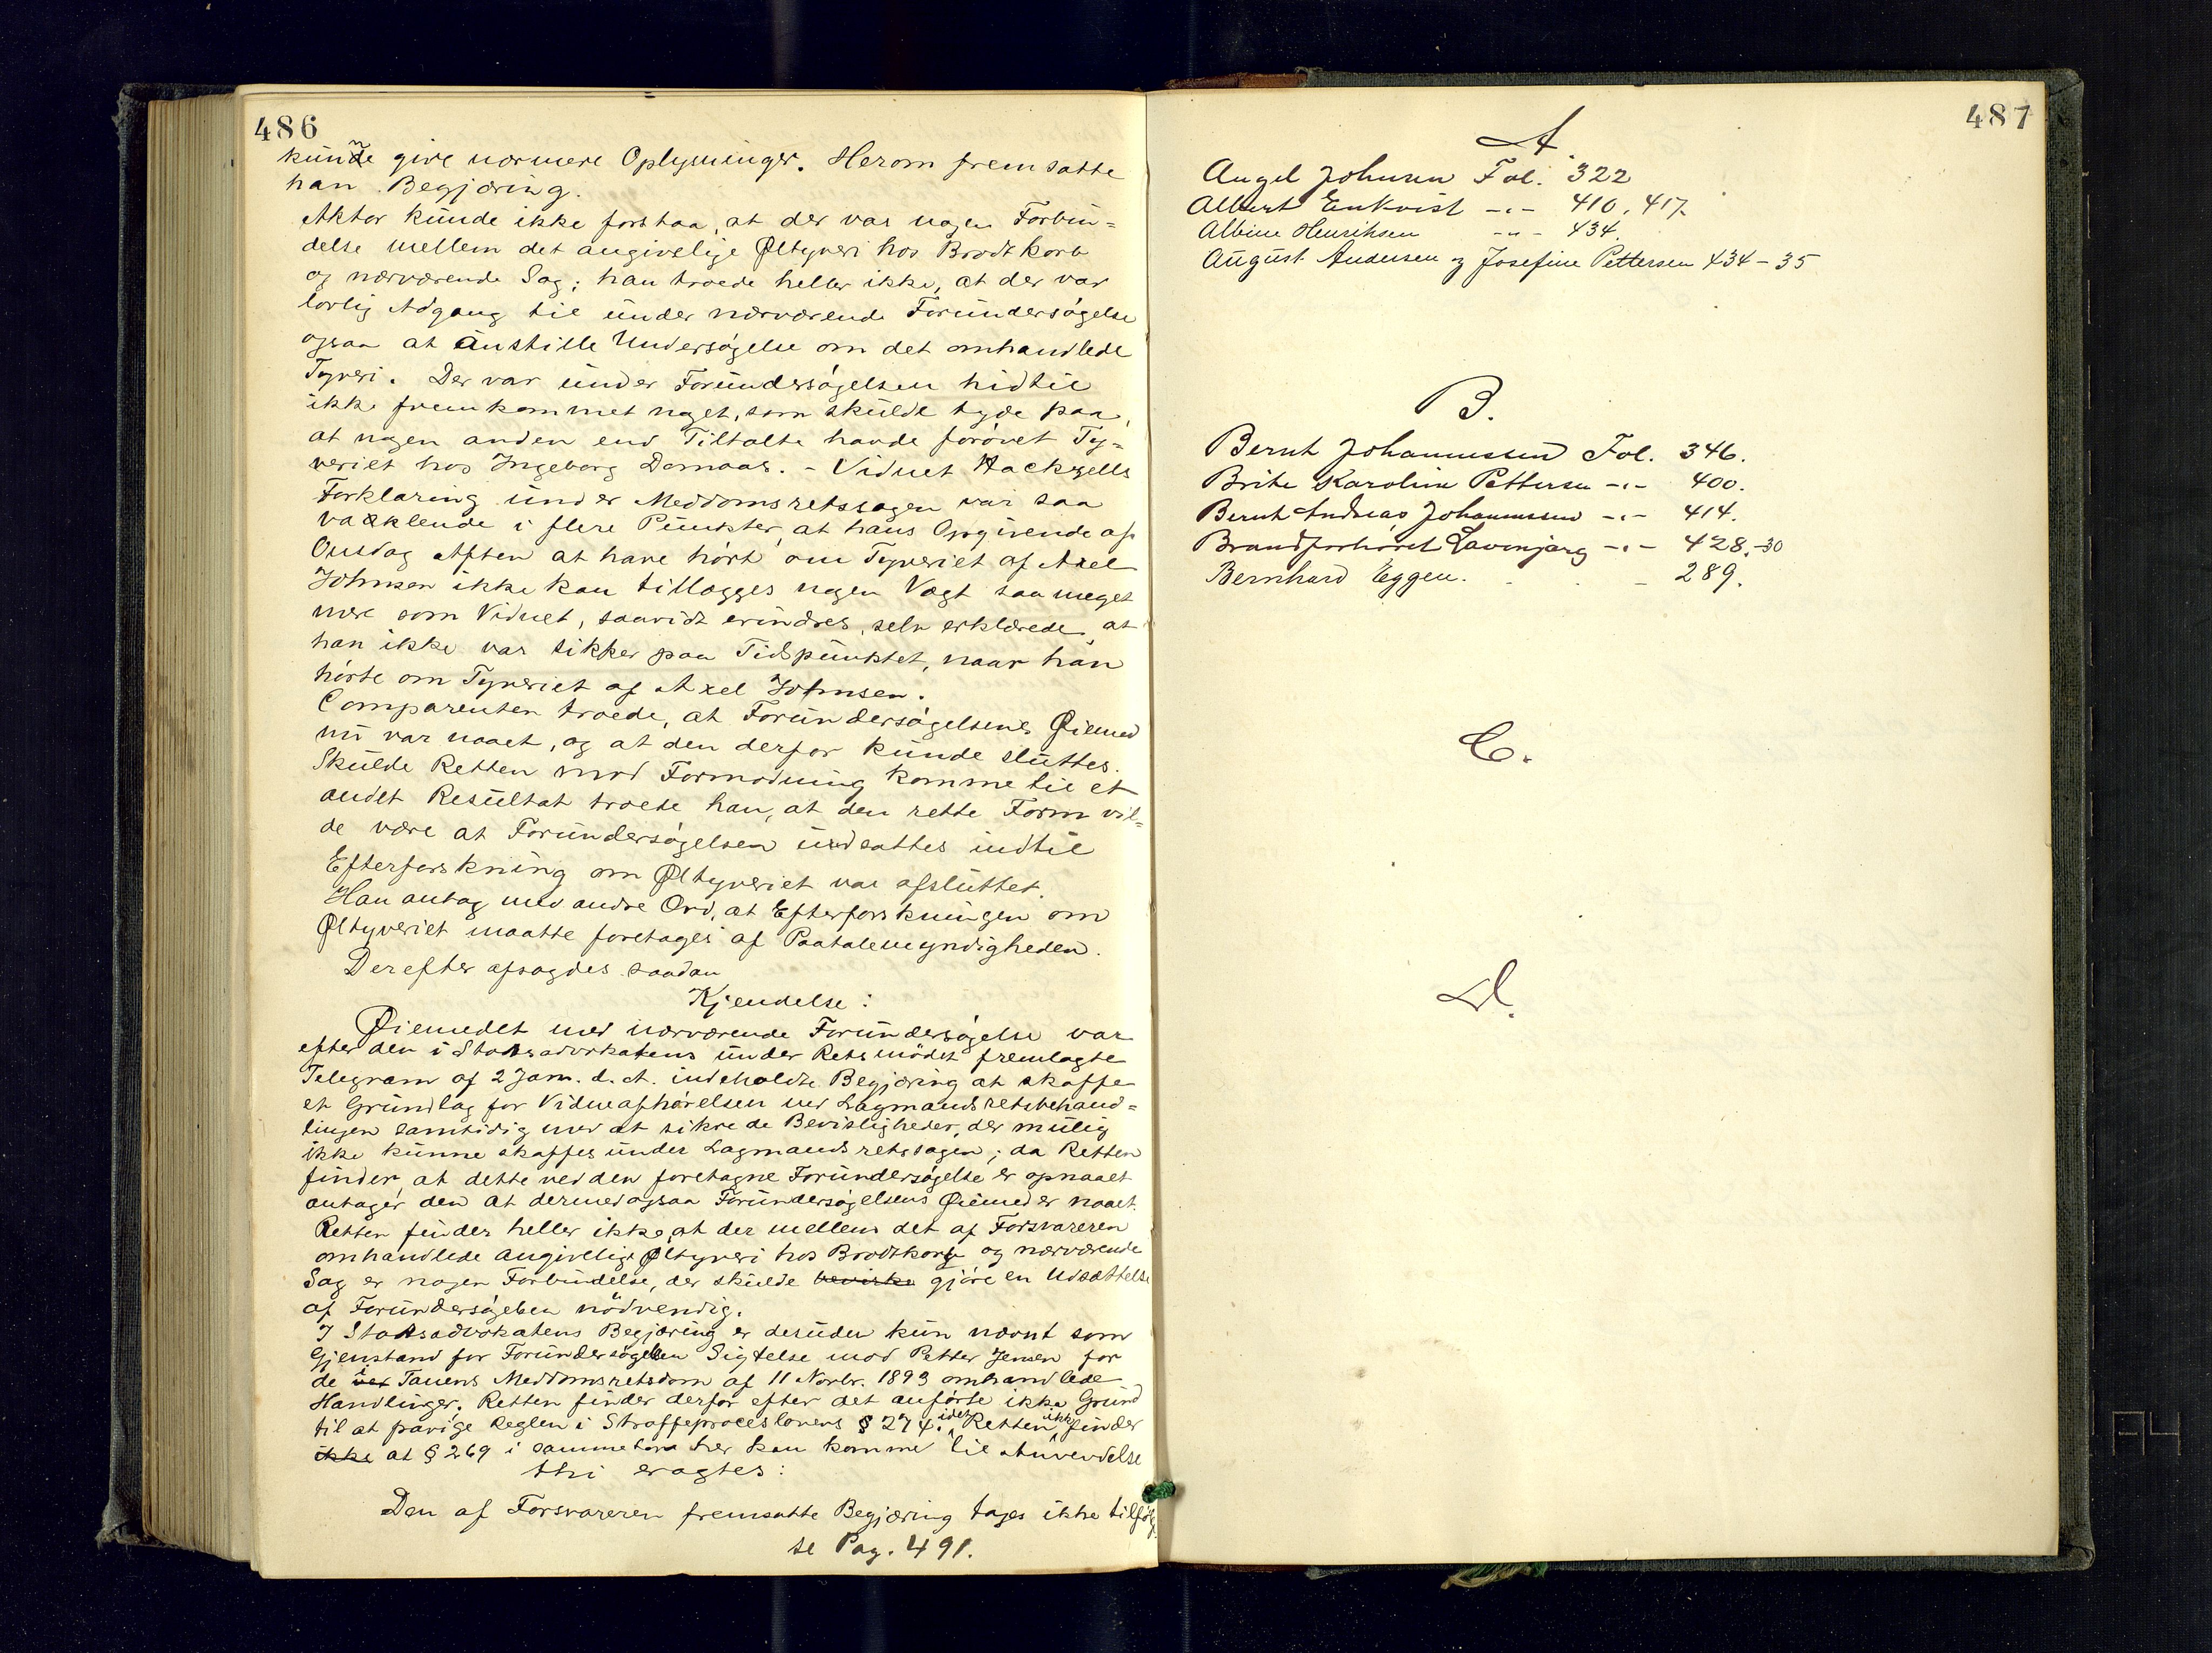 486
kunne give nærmere Oplysninger. Herom fremsatte
han Begjæring.
Aktor kunde ikke forstaa, at der var nogen Forbin=
delse mellem det angivelige Øltyveri hos Brodtkorb
og nærværende Sag; han troede heller ikke, at der var
lovlig Adgang til under nærværende Forundersøgelse
ogsaa at anstille Undersøgelse om det omhandlede
Tyveri. Der var under Forundersøgelsen hidtil
ikke fremkommet noget, som skulde tyde paa,
at nogen anden end Tiltalte havde forøvet Ty=
veriet hos Ingeborg Domaas. - Vidnet Hackzells
Forklaring under Meddomsretssagen var saa
vaklende i flere Punkter, at hans Opgivende af
Onsdag Aften at have hørt om Tyveriet af Axel
Johnsen ikke kan tillægges nogen Vægt saa meget
mere som Vidnet, saavidt erindres, selv erklærede, at
han ikke var sikker paa Tidspunktet, naar han
hørte om Tyveriet af Axel Johnsen.
Comparenten troede, at Forundersøgelsens Øiemed
nu var naaet, og at den derfor kunde sluttes.
Skulde Retten mod Formodning komme til et
andet Resultat troede han, at den rette Form vil=
de være at Forundersøgelsen udsattes indtil
Efterforskning om Øltyveriet var afsluttet.
Han antog med andre Ord, at Efterforskningen om
Øltyveriet maatte foretages af Paatalemyndigheden.
Derefter afsagdes saadan
Kjendelse:
Øiemedet med nærværende Forundersøgelse var
efter den i Statsadvokatens under Retsmødet fremlagte
Telegram af 2 Jan. d. A. indeholdte Begjæring at skaffe
et Grundlag for Vidneafhørelsen ved Lagmandsretsbehand=
lingen samtidig med at sikre de Bevisligheder, der mulig
ikke kunne skaffes under Lagmandsretssagen; da Retten
finder, at dette ved den foretagne Forundersøgelse er opnaaet
antager den at dermed ogsaa Forundersøgelsens Øiemed er naaet.
Retten finder heller ikke, at der mellem det af Forsvareren
omhandlede angivelige Øltyveri hos Brodtkorb og nærværende
Sag er nogen Forbindelse, der skulde bevirke gjøre en Udsættelse
af Forundersøgelsen nødvendig.
I Statsadvokatens Begjæring er desuden kun nævnt som
Gjenstand for Forundersøgelsen Sigtelse mod Petter Jensen for
de ved i Tanens Meddomsretsdom af 11 Novbr. 1893 omhandlede
Handlinger. Retten finder derfor efter det anførte ikke Grund
til at fravige Reglen i Straffeproceslovens § 274. idet Retten ikke finder
ikke at § 269 i samme Lov her kan komme til Anvendelse
thi eragtes:
Den af Forsvareren fremsatte Begjæring tages ikke tilfølge.
se Pag. 491.
487
A.
Angel Johnsen Fol. 322
Albert Enkvist -"- 410, 417.
Albine Henriksen -"- 434.
August Andersen og Josefine Pettersen 434-35
B.
Bernt Johannessen Fol. 346.
Brite Karoline Pettersen -"- 400.
Bernt Andreas Johannessen -"- 414.
Brandforhøret Lavonjarg -"- 428.-30
Bernhard Eggen. - 289.
C.
D.